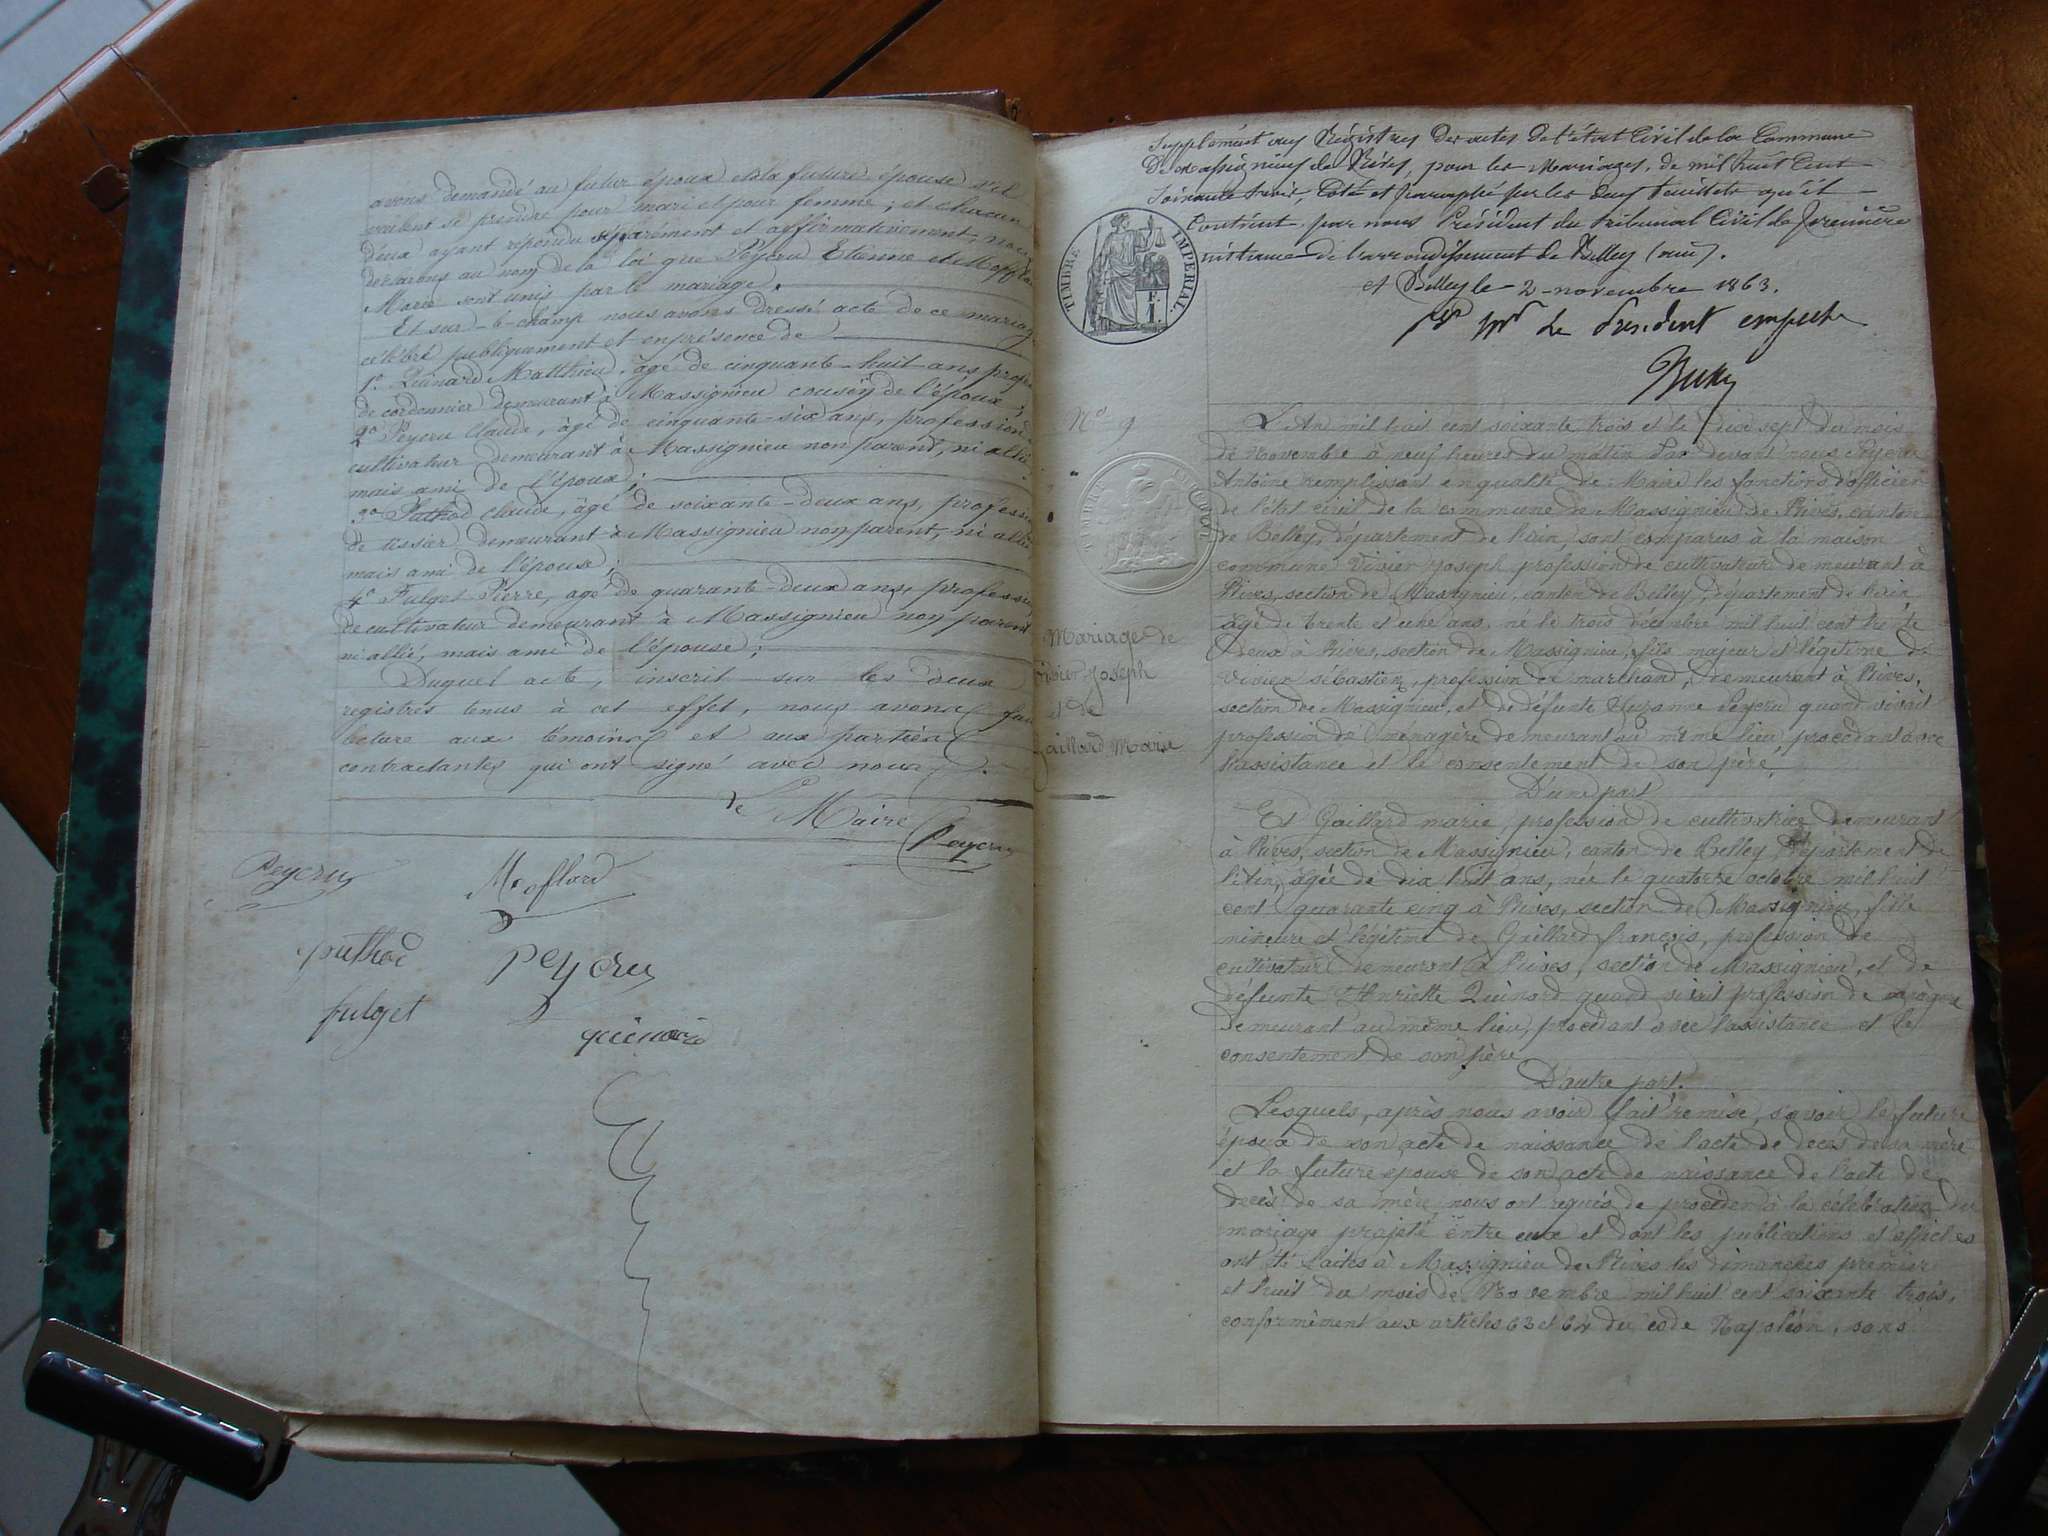 avons demandé au futur époux et à la future épouse s'il
veulent se prendre pour mari et pour femme; et chacun
d'eux ayant répondu séparément et affirmativement, nous
déclarons au nom de la loi que Peyeru Etienne et Mofflard
Marie sont unis par le mariage.
Et sur-le-champ nous avons dressé acte de ce mariag
célébré publiquement et en présence de
1º Quinard Matthieu, âgé de cinquante-huit ans profes
de cordonnier demeurant à Massignieu cousin de l'époux;
2º Peyeru Claude, âgé de cinquante-six ans, profession
cultivateur demeurant à Massignieu non parent, ni allié
mais ami de l'époux;
3º Puthod Claude, âgé de soixante-deux ans, professi
de tissier demeurant à Massignieu non parent, ni allié
mais ami de l'épouse;
4º Fulget Pierre, âgé de quarante-deux ans, professi
de cultivateur demeurant à Massignieu non parent
ni allié, mais ami de l'épouse;
Duquel acte, inscrit sur les deux
registres tenus à cet effet, nous avons fai
lecture aux témoins et aux parties
contractantes qui ont signé avec nous.
Le Maire
Peyeru
Peyeru Mofflard
puthod Peyeru
fulget
quinard
Supplément aux Régistres des actes de l'état Civil de la Commune
De Massignieu de Rives, pour les Mariages, de mil huit Cent
Soixante trois, Coté et Paraphé sur les deux feuillets qu'il
Contient, par nous Président du tribunal Civil de Première
instance de l'arrondissement de Belley (ain).
TIMBRE IMPERIAL
F. 1.
et Belley le 2 novembre 1863.
Pr Mr Le President empeché
Nº 9
L'An mil huit cent soixante trois et le dix sept du mois
de Novembre à neuf heures du matin Par devant nous Peyeru
Antoine remplissant en qualité de Maire les fonctions d'officier
de l'état civil de la commune de Massignieu de Rives, canton
de Belley, département de l'ain, sont comparus à la maison
commune Vivier Joseph profession de cultivateur demeurant à
Rives, section de Massignieu, canton de Belley, département de l'ain
âgé de trente et une ans, né le trois décembre mil huit cent trente
Deux à Rives, section de Massignieu, fils majeur et légitime de
Vivier Sébastien, profession de marchand, demeurant à Rives,
section de Massignieu, et de défunte Suzanne Peyeru quand vivait
profession de ménagère demeurant au même lieu, procédant avec
l'assistance et le consentement de son père,
D'une part
Mariage de
Vivier Joseph
et de
Gaillard Marie
Et Gaillard marie, profession de cultivatrice demeurant
à Rives, section de Massignieu, canton de Belley, département de
l'Ain, âgée de dix huit ans, née le quatorze octobre mil huit
cent quarante cinq à Rives, section de Massignieu, fille
mineure et légitime de Gaillard françois, profession de
cultivateur demeurant à Rives, section de Massignieu, et de
défunte Henriette Quinard quand vivait profession de ménagère
demeurant au même lieu, procédant avec l'assistance et le
consentement de son père
D'autre part.
Lesquels, après nous avoir fait remise, savoir le future
époux de son acte de naissance de l'acte de decès de sa mère
et la future epouse de son acte de naissance de l'acte de
decès de sa mère, nous ont requis de procéder à la célébration du
mariage projeté entre eux et dont les publications et affiches
ont été faites à Massignieu de Rives les dimanches premier
et huit du mois de Novembre mil huit cent soixante trois,
conformément aux articles 63 et 64 du code Napoléon, sans